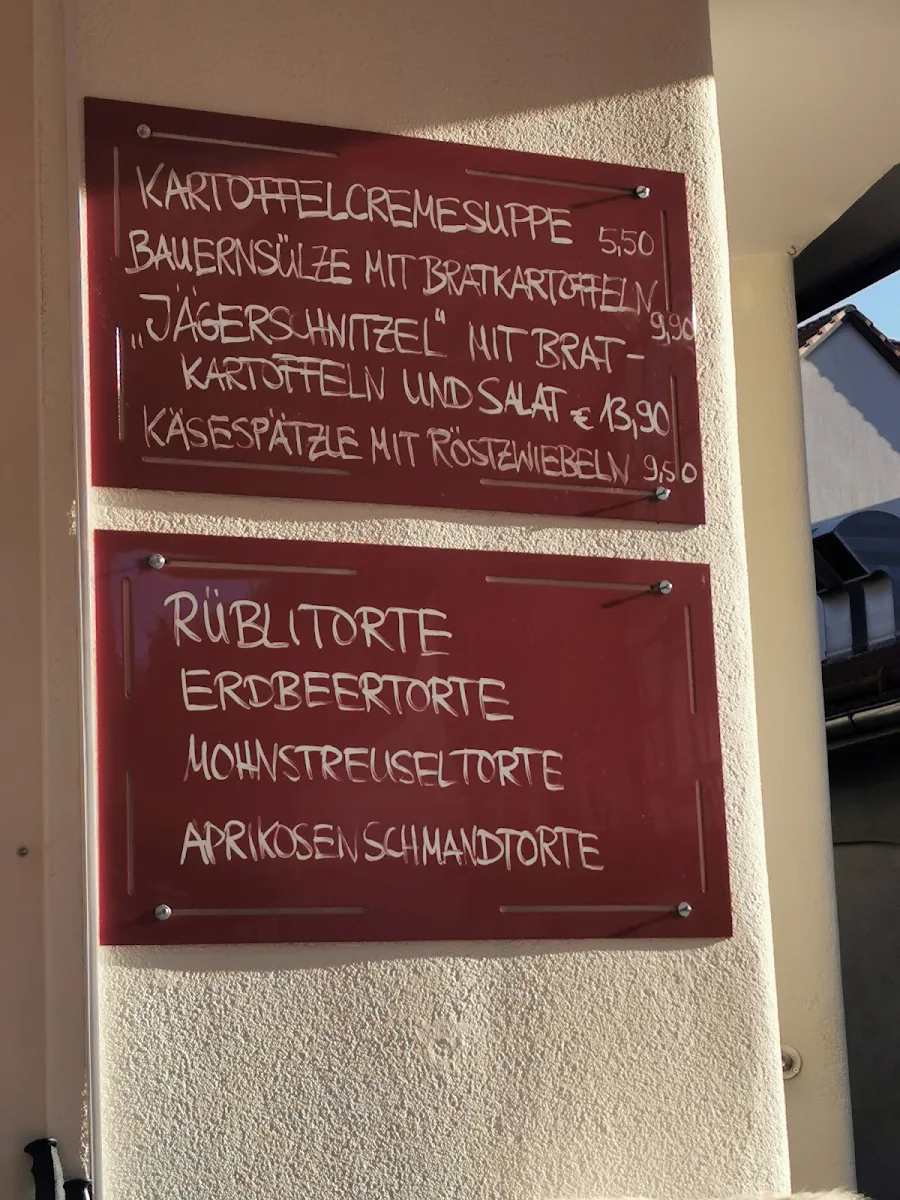 KARTOFFELCREMESUPPE 5,50
BAUERNSÜLZE MIT BRATKARTOFFELN 9,90
„JÄGERSCHNITZEL“ MIT BRAT-
KARTOFFELN UND SALAT € 13,90
KÄSESPÄTZLE MIT RÖSTZWIEBELN 9,50
RÜBLITORTE
ERDBEERTORTE
MOHNSTREUSELTORTE
APRIKOSENSCHMANDTORTE